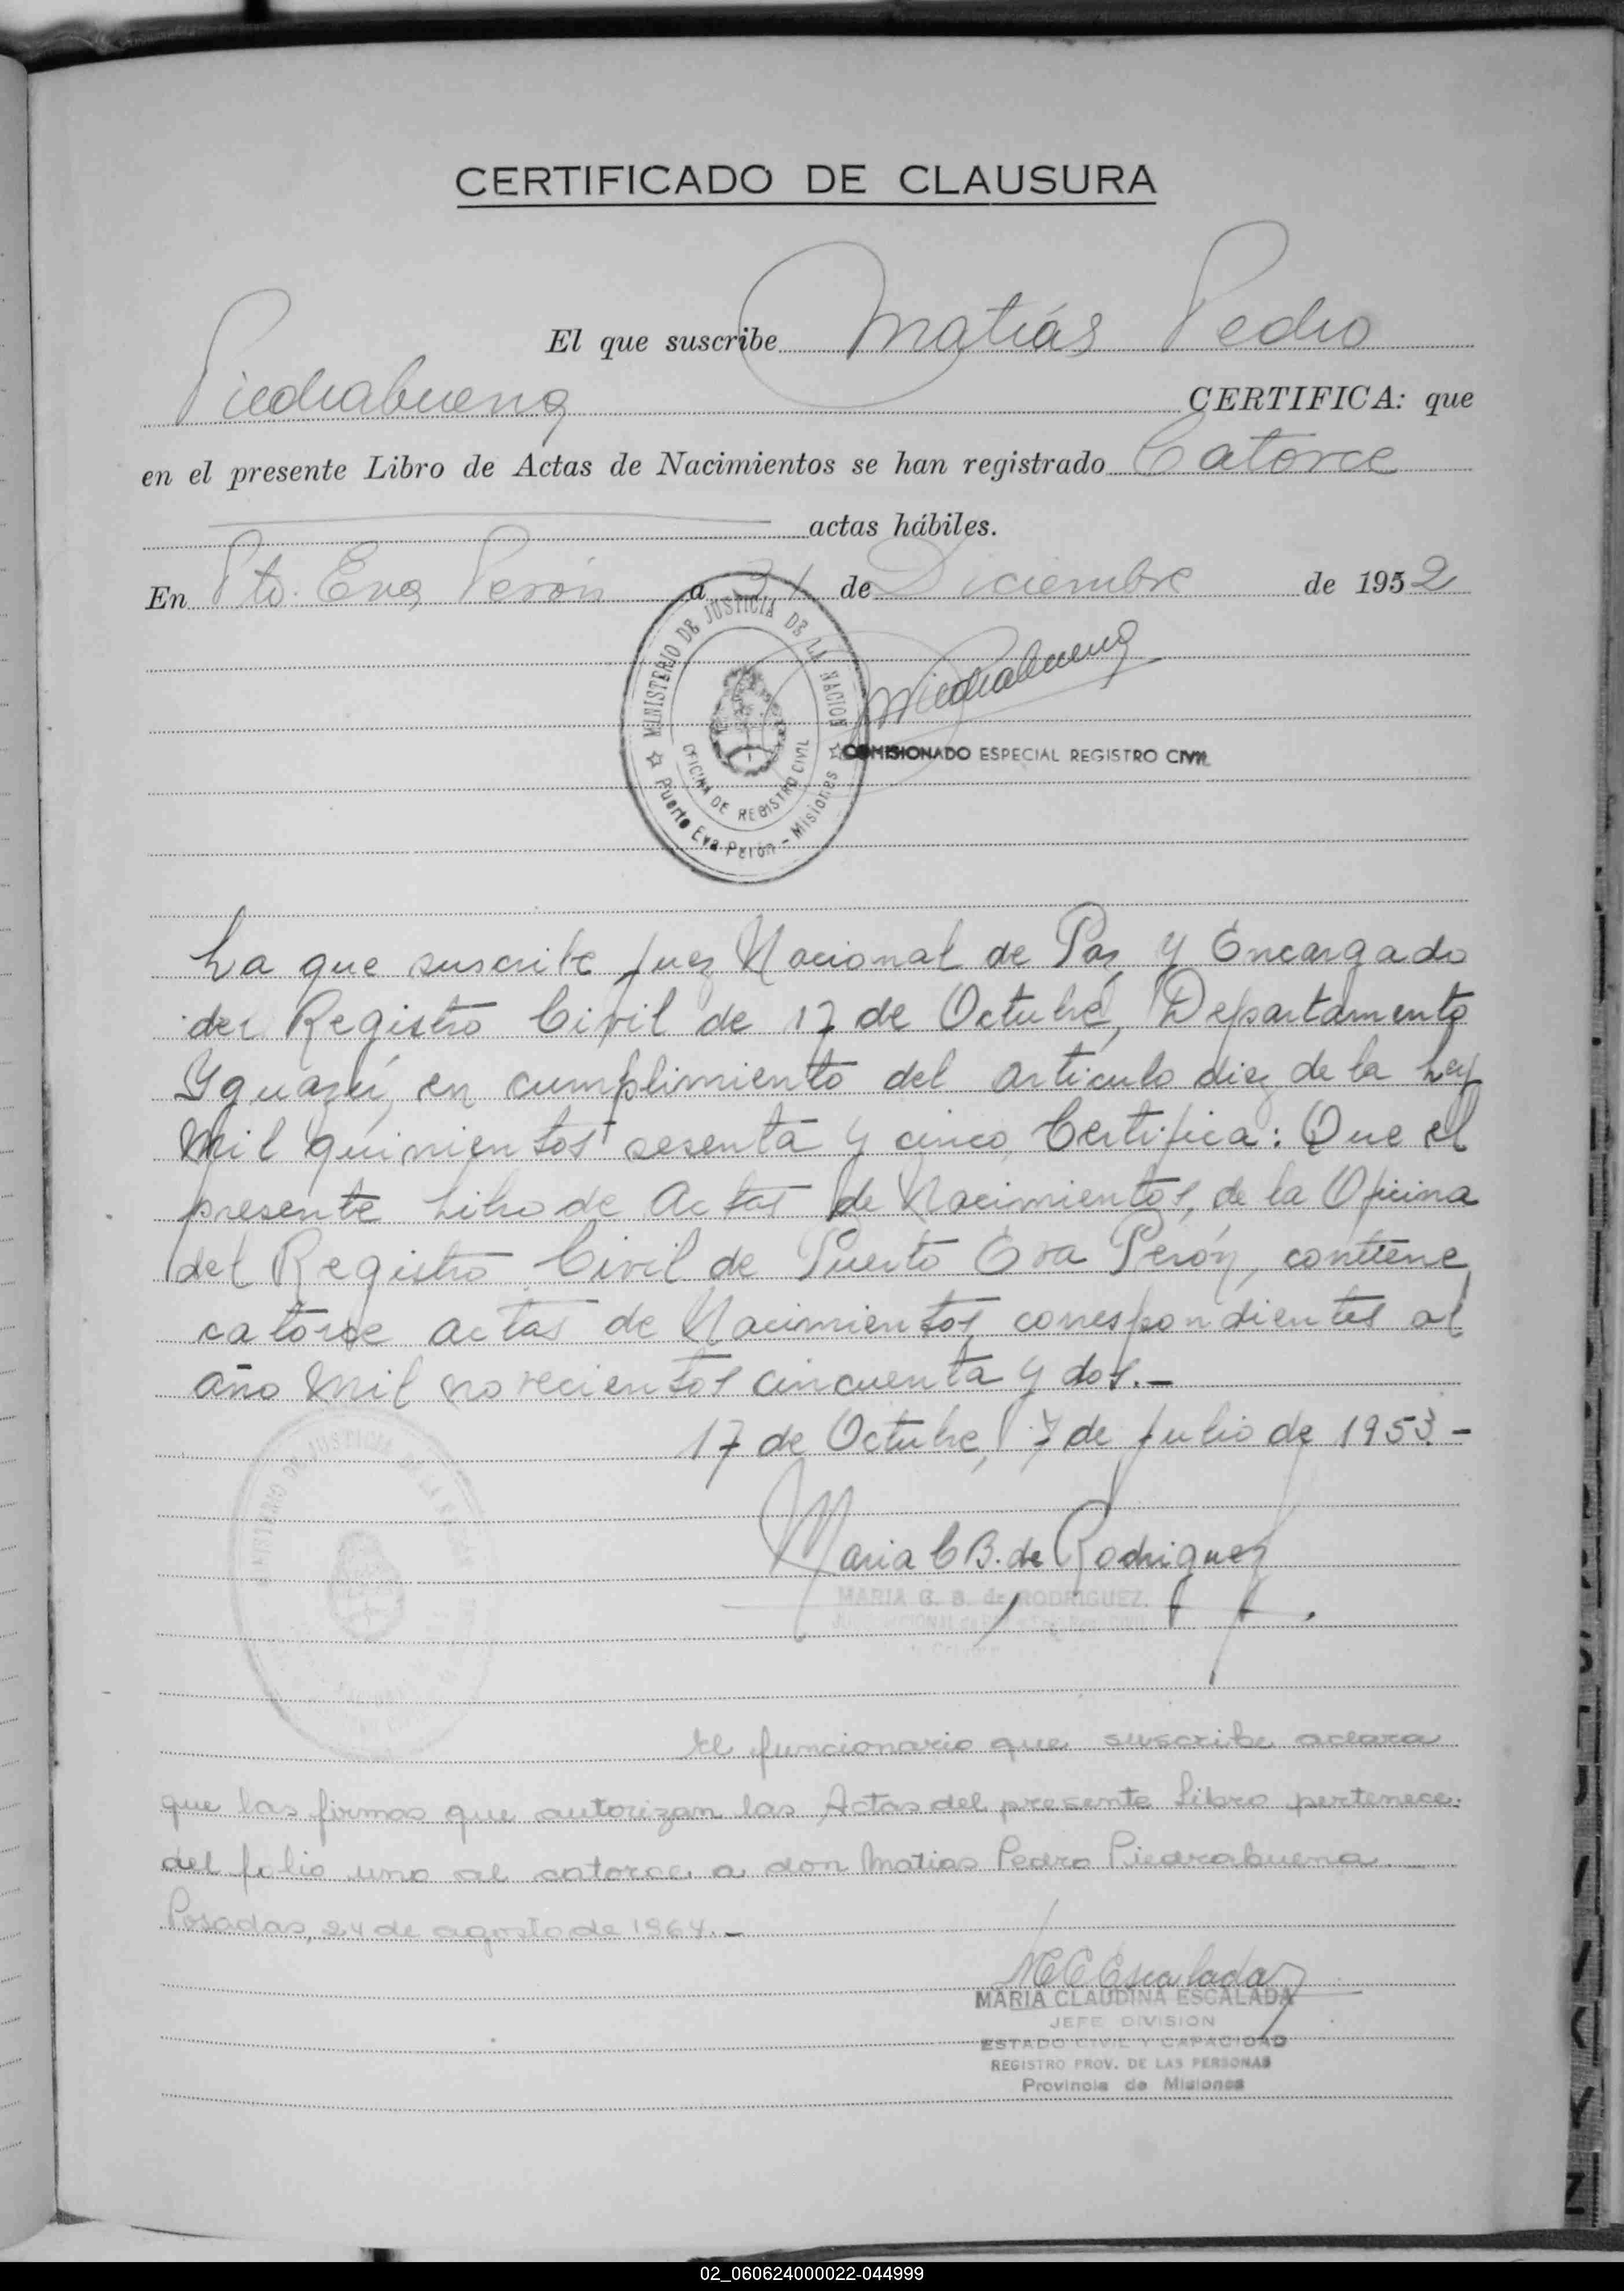 CERTIFICADO DE CLAUSURA
El que suscribe Matías Pedro
Piedrabuena CERTIFICA: que
en el presente Libro de Actas de Nacimientos se han registrado Catorce
actas hábiles.
En Pto. Eva Perón a 31 de Diciembre de 1952
MINISTERIO DE JUSTICIA DE LA NACION
OFICINA DE REGISTRO CIVIL
Puerto Eva Perón - Misiones
Piedrabuena
COMISIONADO ESPECIAL REGISTRO CIVIL
La que suscribe Juez Nacional de Paz y Encargado
del Registro Civil de 17 de Octubre, Departamento
Yguazú, en cumplimiento del artículo diez de la Ley
Mil quinientos sesenta y cinco, Certifica: Que el
presente Libro de Actas de Nacimientos, de la Oficina
del Registro Civil de Puerto Eva Perón, contiene
catorce actas de Nacimientos correspondientes al
año Mil novecientos cincuenta y dos.-
17 de Octubre, 7 de Julio de 1953-
Maria C B. de Rodriguez
MARIA C. B. de RODRIGUEZ.
El funcionario que suscribe aclara
que las firmas que autorizan las Actas del presente Libro pertenece.
del folio uno al catorce a don Matias Pedro Piedrabuena.
Posadas, 24 de agosto de 1964.-
M C Escalada
MARIA CLAUDINA ESCALADA
JEFE DIVISION
ESTADO CIVIL Y CAPACIDAD
REGISTRO PROV. DE LAS PERSONAS
Provincia de Misiones
02_060624000022-044999